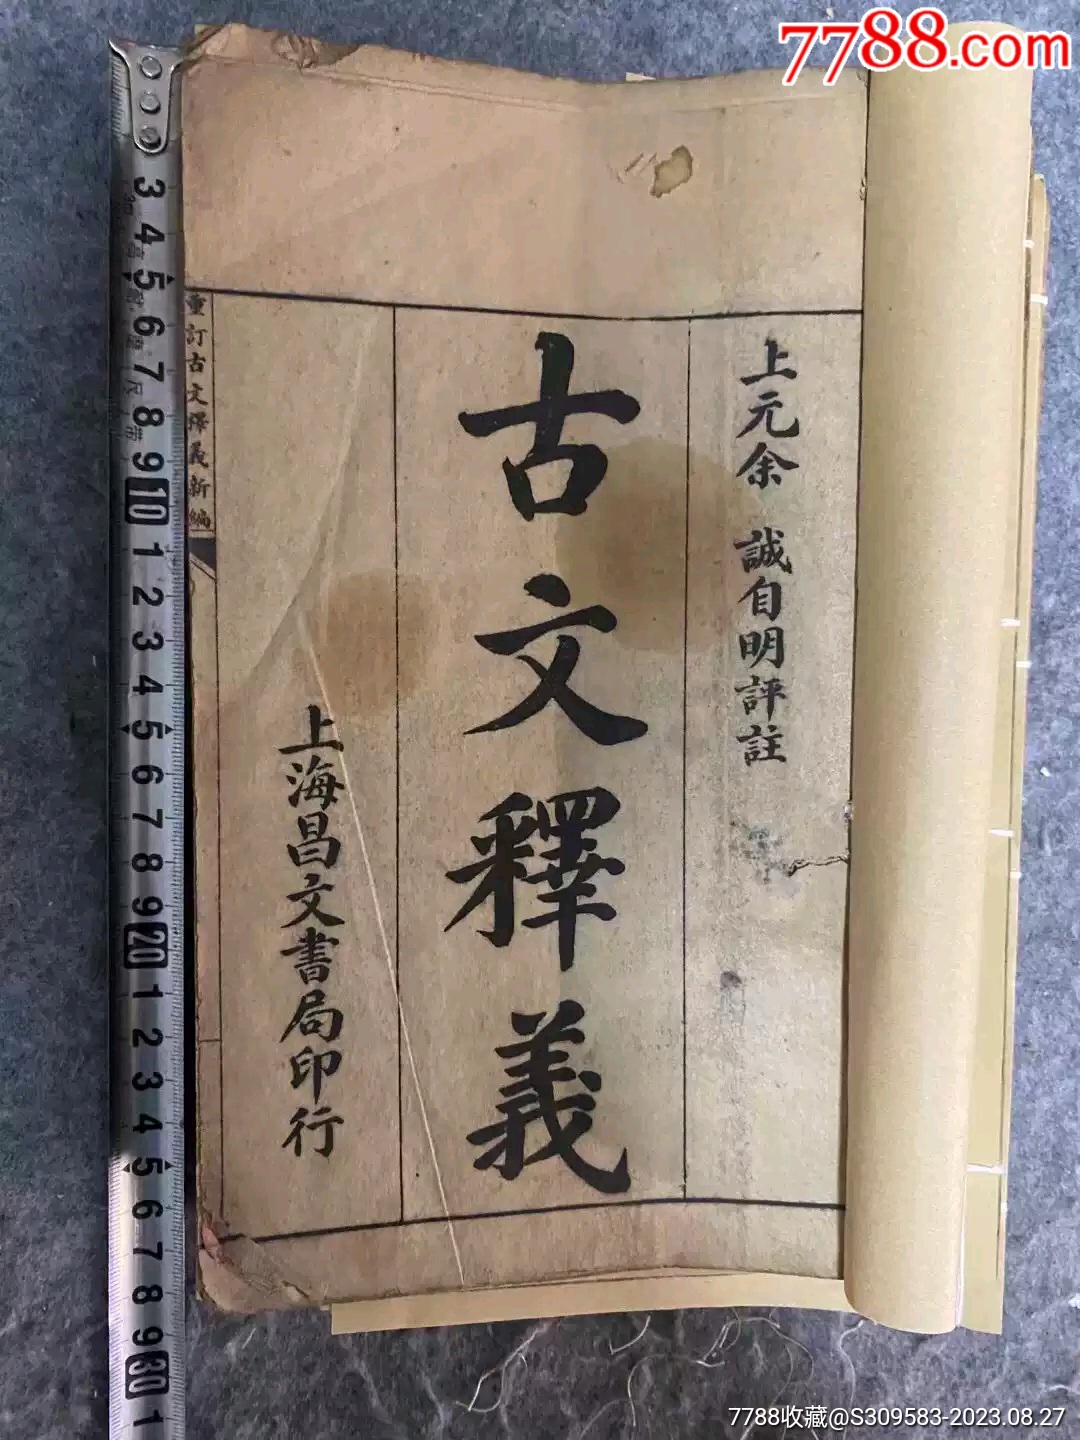 7788.com
上元余 誠自明評註
古文釋義
上海昌文書局印行
重訂古文釋義新編
3 4 5 6 7 8 9 10 1 2 3 4 5 6 7 8 9 20 1 2 3 4 5 6 7 8 9 30 1
7788收藏@S309583-2023.08.27